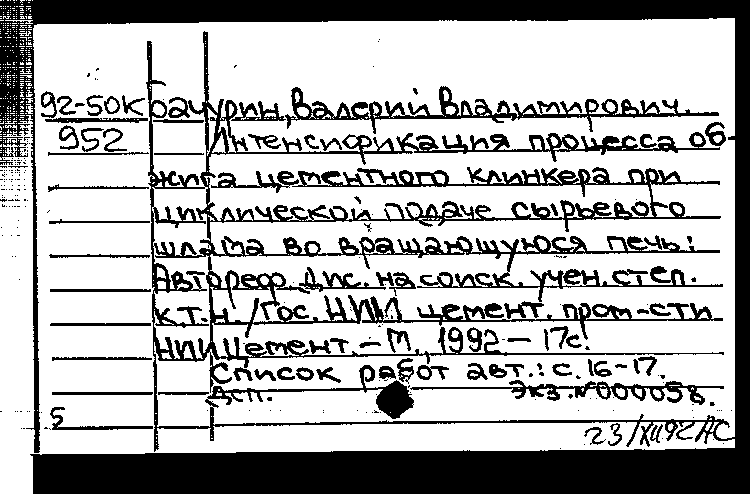 92-50К Бачурин, Валерий Владимирович.
952 Интенсификация процесса об-
жига цементного клинкера при
циклической подаче сырьевого
шлама во вращающуюся печь:
Автореф. дис. на соиск. учен. степ.
к.т.н. /Гос. НИИ цемент. пром-сти
НИИЦемент. – М., 1992 – 17с.
Список работ авт.: с. 16-17.
Дсп. Экз. №000058.
5
23/XII92 АС